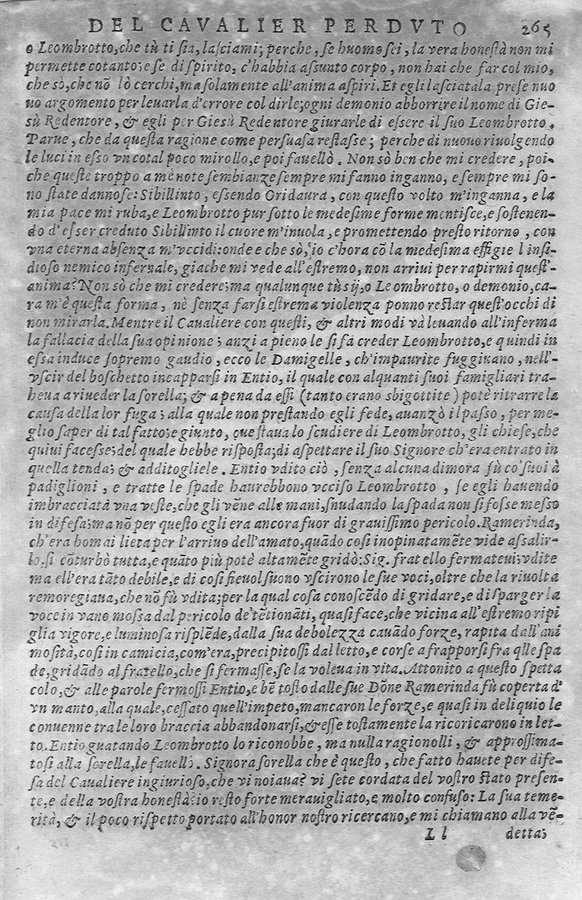 DEL CAVALIER PERDVTO 265
o Leombrotto, che tù ti sia, lasciami; perche, se huomo sei, la vera honestà non mi
permette cotanto: e se di spirito, c'habbia assunto corpo, non hai che far col mio,
che sò, che nõ lò cerchi, ma solamente all'anima aspiri. Et egli lasciatala prese nuo
uo argomento per leuarla d'errore col dirle; ogni demonio abborrire il nome di Gie-
sù Redentore, & egli per Giesù Redentore giurarle di essere il suo Leombrotto.
Parue, che da questa ragione come persuasa restasse; perche di nuouo riuolgendo
le luci in esso vn cotal poco mirollo, e poi fauellò. Non sò ben che mi credere, poi-
che queste troppo a me note sembianze sempre mi fanno inganno, e sempre mi so-
no state dannose: Sibillinto, essendo Oridaura, con questo volto m'inganna, e la
mia pace mi ruba, e Leombrotto pur sotto le medesime forme mentisce, e sostenen-
do d'esser creduto Sibillinto il cuore m'inuola, e promettendo presto ritorno, con
vna eterna absenza m'vccidi: onde e che sò, io c'hora cõ la medesima effigie l'insi-
dioso nemico infernale, giache mi vede all'estremo, non arriui per rapirmi quest'-
anima? Non sò che mi credere; ma qualunque tù sij, o Leombrotto, o demonio, ca-
ra m'è questa forma, nè senza farsi estrema violenza ponno restar quest'occhi di
non mirarla. Mentre il Caualiere con questi, & altri modi và leuando all'inferma
la fallacia della sua opinione; anzi a pieno le si fà creder Leombrotto, e quindi in
essa induce sopremo gaudio, ecco le Damigelle, ch'impaurite fuggirano, nell'-
vscir del boschetto incapparsi in Entio, il quale con alquanti suoi famigliari tra-
heua a riueder la sorella; & a pena da essi (tanto erano sbigottite) potè ritrarre la
causa della lor fuga; alla quale non prestando egli fede, auanzò il passo, per me-
glio saper di tal fatto: e giunto, oue staua lo scudiere di Leombrotto, gli chiese, che
quiui facesse; del quale hebbe risposta; di aspettare il suo Signore ch'era entrato in
quella tenda; & additogliele. Entio vdito ciò, senza alcuna dimora fù co' suoi à
padiglioni, e tratte le spade haurebbono vcciso Leombrotto, se egli hauendo
imbracciata vna veste, che gli vẽne alle mani, snudando la spada non si fosse messo
in difesa; ma nõ per questo egli era ancora fuor di grauissimo pericolo. Ramerinda,
ch'era homai lieta per l'arriuo dell'amato, quãdo così inopinatamẽte vide assalir-
lo. si cõturbò tutta, e quãto più potè altamẽte gridò: Sig. fratello fermateui; vdite
ma ell'era tãto debile, e di così fieuol suono vscirono le sue voci, oltre che la riuolta
remoregiaua, che nõ fù vdita; per la qual cosa conoscẽdo di gridare, e di sparger la
voce in vano mossa dal pericolo de' tẽtionãti, quasi face, che vicina all'estremo ripi
glia vigore, e luminosa risplẽde, dalla sua debolezza cauãdo forze, rapita dall'ani
mosità, così in camicia, com'era, precipitossi dal letto, e corse a frapporsi fra q̃lle spa
de, gridãdo al fratello, che si fermasse, se la voleua in vita. Attonito a questo spetta
colo, & alle parole fermossi Entio, e bẽ tosto dalle sue Dõne Ramerinda fù coperta d'
vn manto, alla quale, cessato quell'impeto, mancaron le forze, e quasi in deliquio le
conuenne tra le loro braccia abbandonarsi, & esse tostamente la ricoricarono in let-
to. Entio guatando Leombrotto lo riconobbe, ma nulla ragionolli, & approssima-
tosi alla sorella, le fauellò. Signora sorella che è questo, che fatto hauete per dife-
sa del Caualiere ingiurioso, che vi noiaua? vi sete cordata del vostro stato presen-
te, e della vostra honestà; io resto forte merauigliato, e molto confuso: La sua teme-
rità, & il poco rispetto portato all'honor nostro ricercano, e mi chiamano alla vẽ-
L l detta;